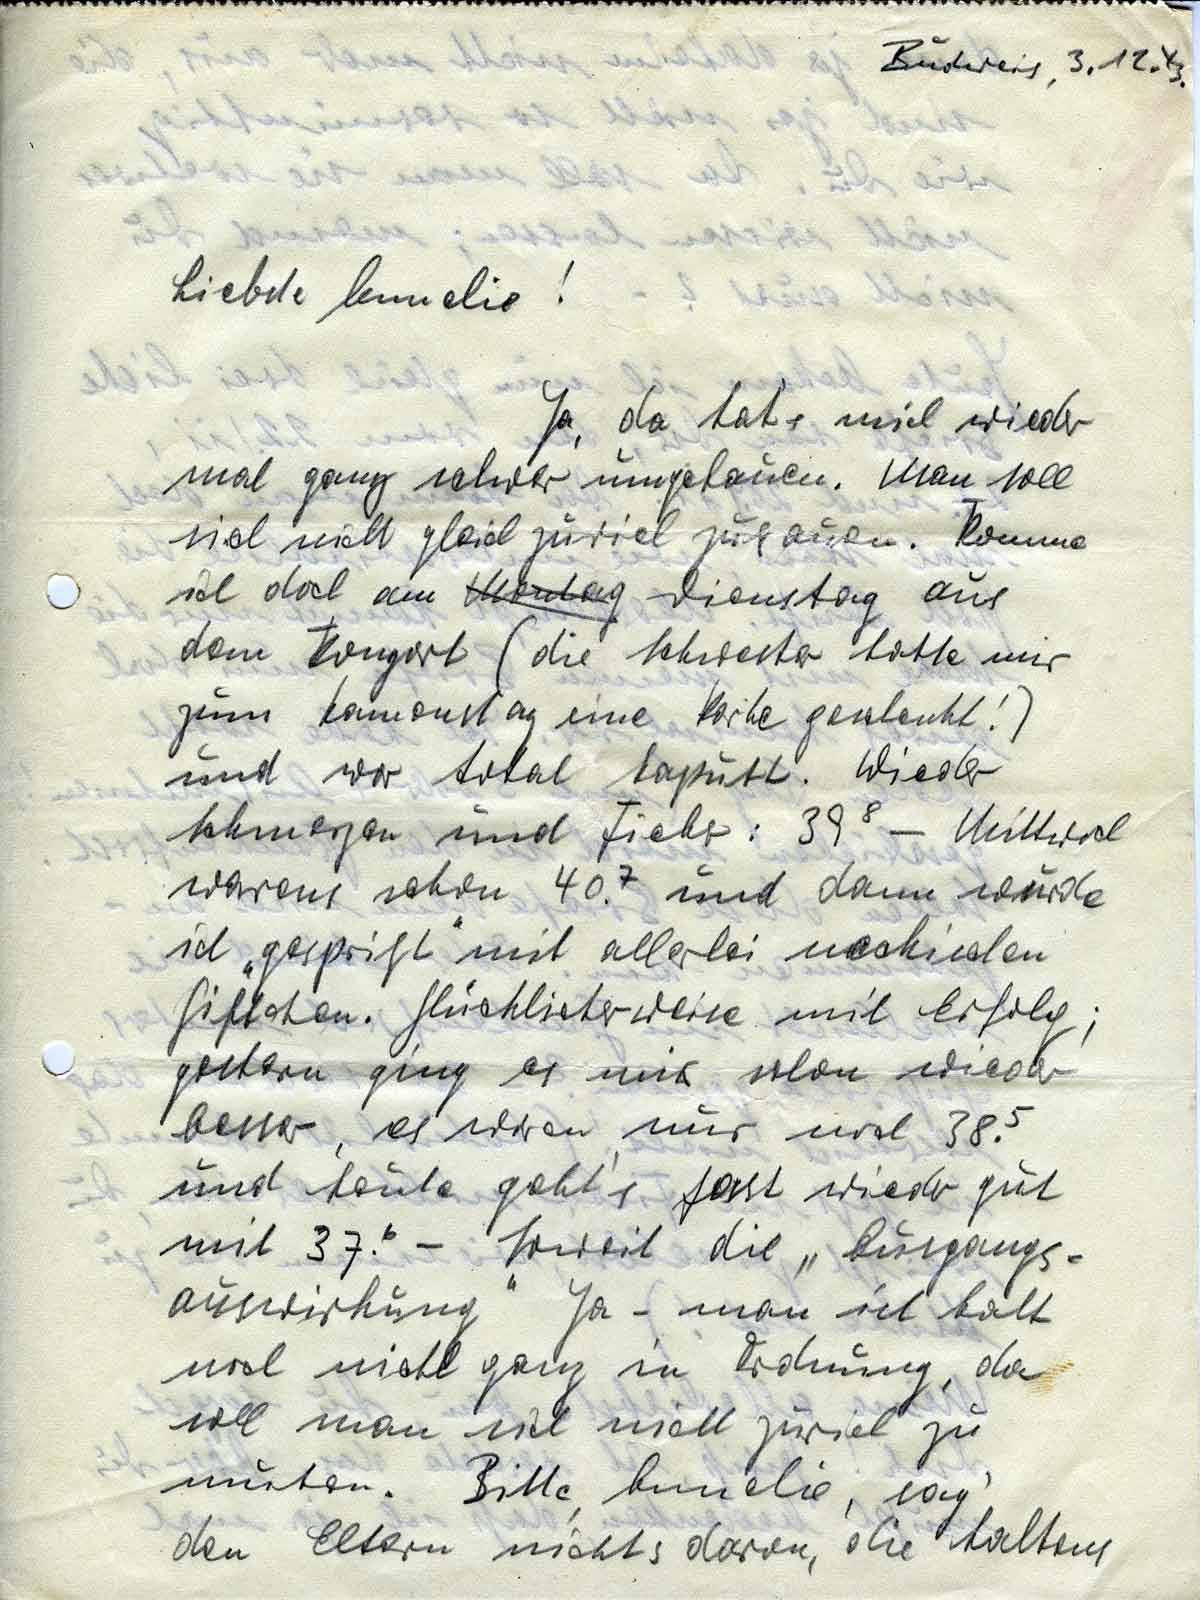 Budweis, 3.12.43.
Liebste Annelie!
Ja, da hat's mich wieder
mal ganz schwer umgehauen. Man soll
sich nicht gleich zuviel zutrauen. Komme
ich doch am Montag Dienstag aus
dem Konzert (die Schwester hatte mir
zum Namenstag eine Karte geschenkt!)
und war total kaputt. Wieder
Schmerzen und Fieber: 39⁸ – Mittwoch
warens schon 40.⁷ und dann wurde
ich „gespritzt" mit allerlei neckischen
Giftchen. Glücklicherweise mit Erfolg;
gestern ging es mir schon wieder
besser, es waren nur noch 38.⁵
und heute geht's fast wieder gut
mit 37.⁶ – Soweit die „Ausgangs-
auswirkung" Ja – man ist halt
noch nicht ganz in Ordnung, da
soll man sich nicht zuviel zu
muten. Bitte, Annelie, sag'
den Eltern nichts davon, die haltens